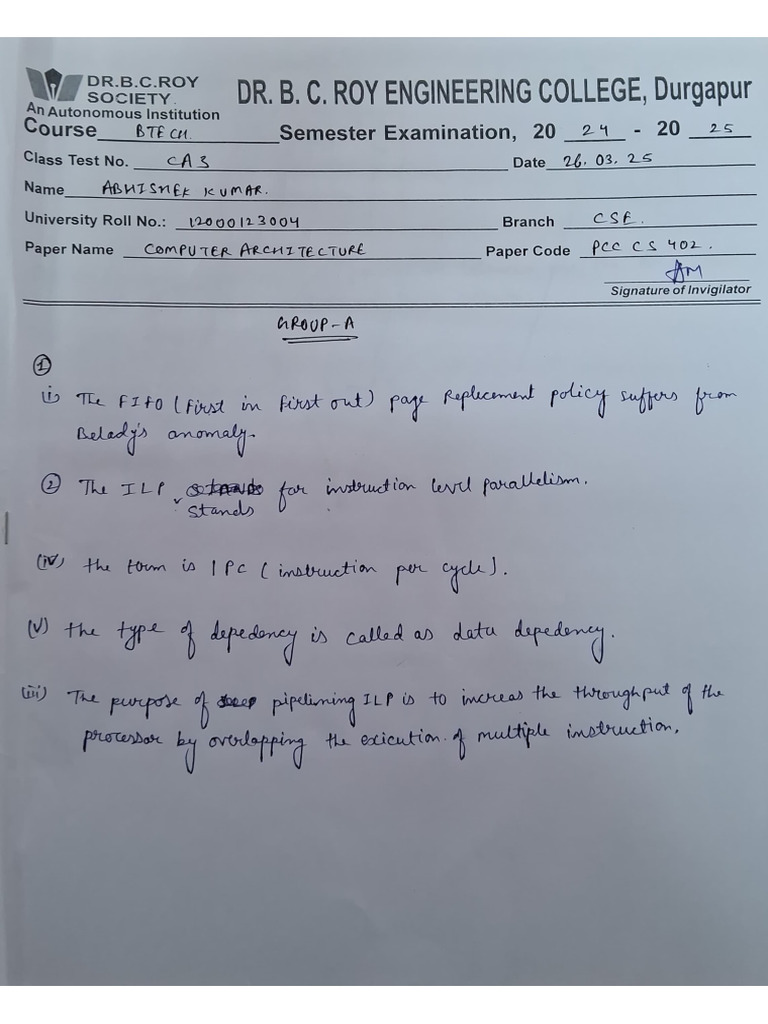 DR.B.C.ROY
SOCIETY
An Autonomous Institution
DR. B. C. ROY ENGINEERING COLLEGE, Durgapur
Course BTECH. Semester Examination, 20 24 - 20 25
Class Test No. CA3 Date 26.03.25
Name ABHISHEK KUMAR.
University Roll No.: 12000123004 Branch CSE.
Paper Name COMPUTER ARCHITECTURE Paper Code PCC CS 402.
AM
Signature of Invigilator
GROUP-A
①
(i) The FIFO (First in first out) page Replecement policy suffers from
Belady's anomaly.
② The ILP for instruction level parallelism.
stands
(iv) the term is IPC (instruction per cycle).
(v) the type of depedency is called as data depedency.
(iii) The purpose of pipelining ILP is to increas the throughput of the
processor by overlapping the exicution of multiple instruction.